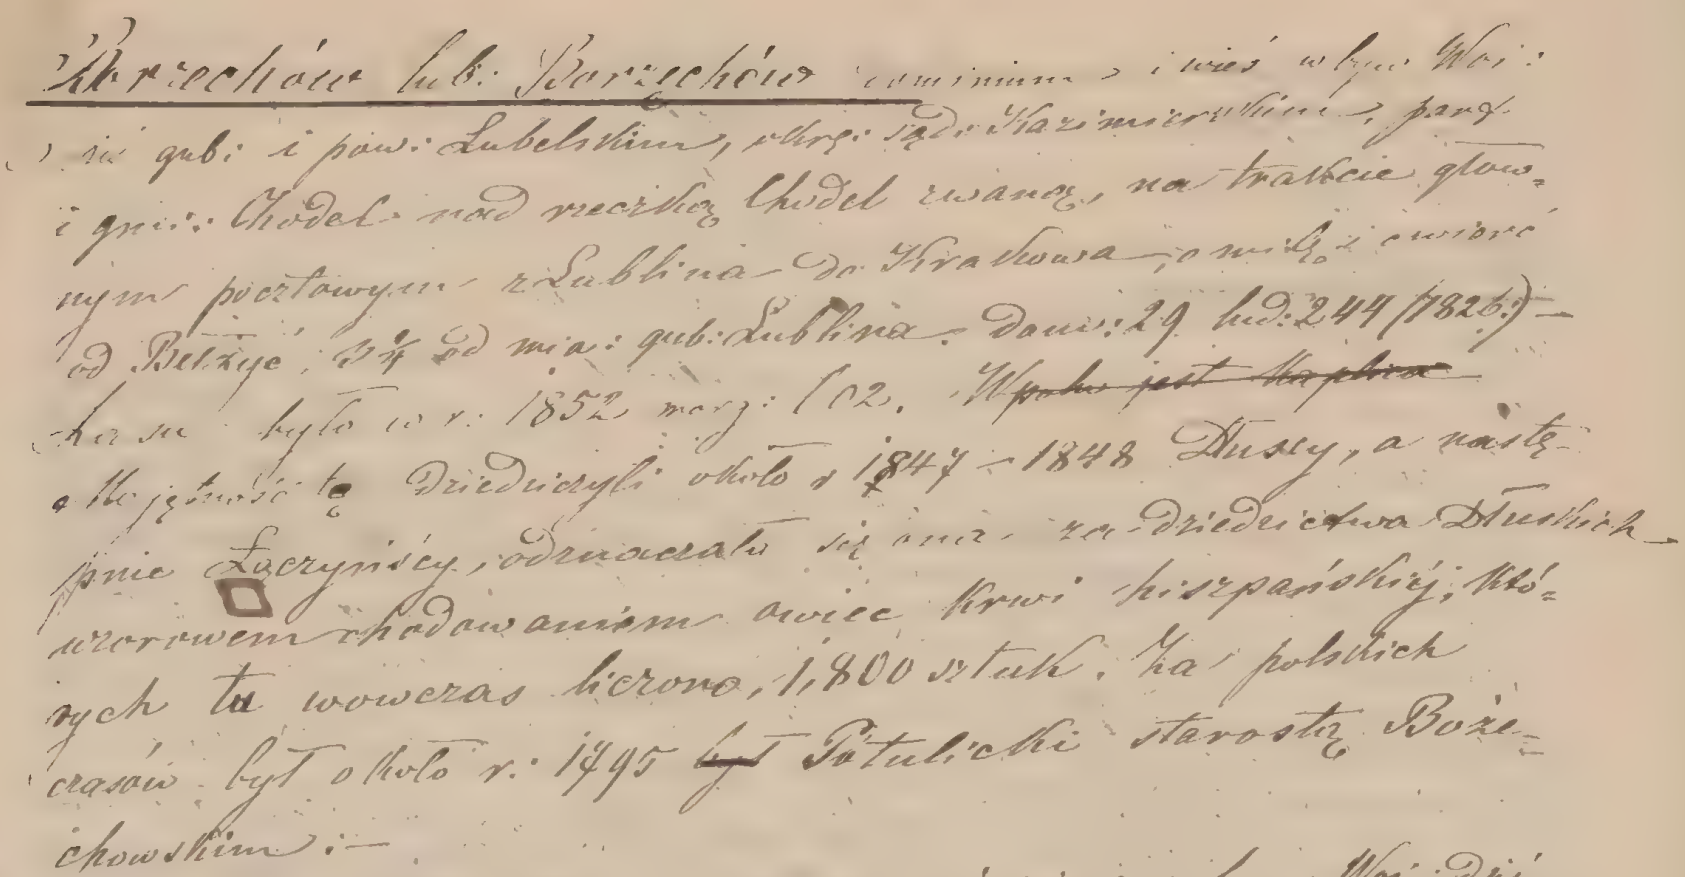 Borzechów lub: Borzechów dominium i wieś w byw: Woj:
gub: i pow: Lubelskim, okrę: sąd: Kazimierskim, paraf
i gmi: Chodel nad rzeczką Chodel zwaną, na trakcie głów-
nym pocztowym z Lublina do Krakowa, o milę i ćwierć
od Bełżyć, 3¼ od mia: gub: Lublina. Dom: 29 lud: 244 (1826:) —
Lasu było w r: 1852 morg: 102. W polu jest kaplica
Majętność tę dziedziczyli około r 1847 – 1848 Dłuscy, a nastę-
pnie Łączyńscy, odznaczała się ona za dziedzictwa Dłuskich
wzorowem chodowaniem owiec krwi hiszpańskiéj, któ-
rych tu wowczas liczono, 1,800 sztuk. Za polskich
czasów był około r.: 1795 był Potulicki starostą Boże-
chowskim :—